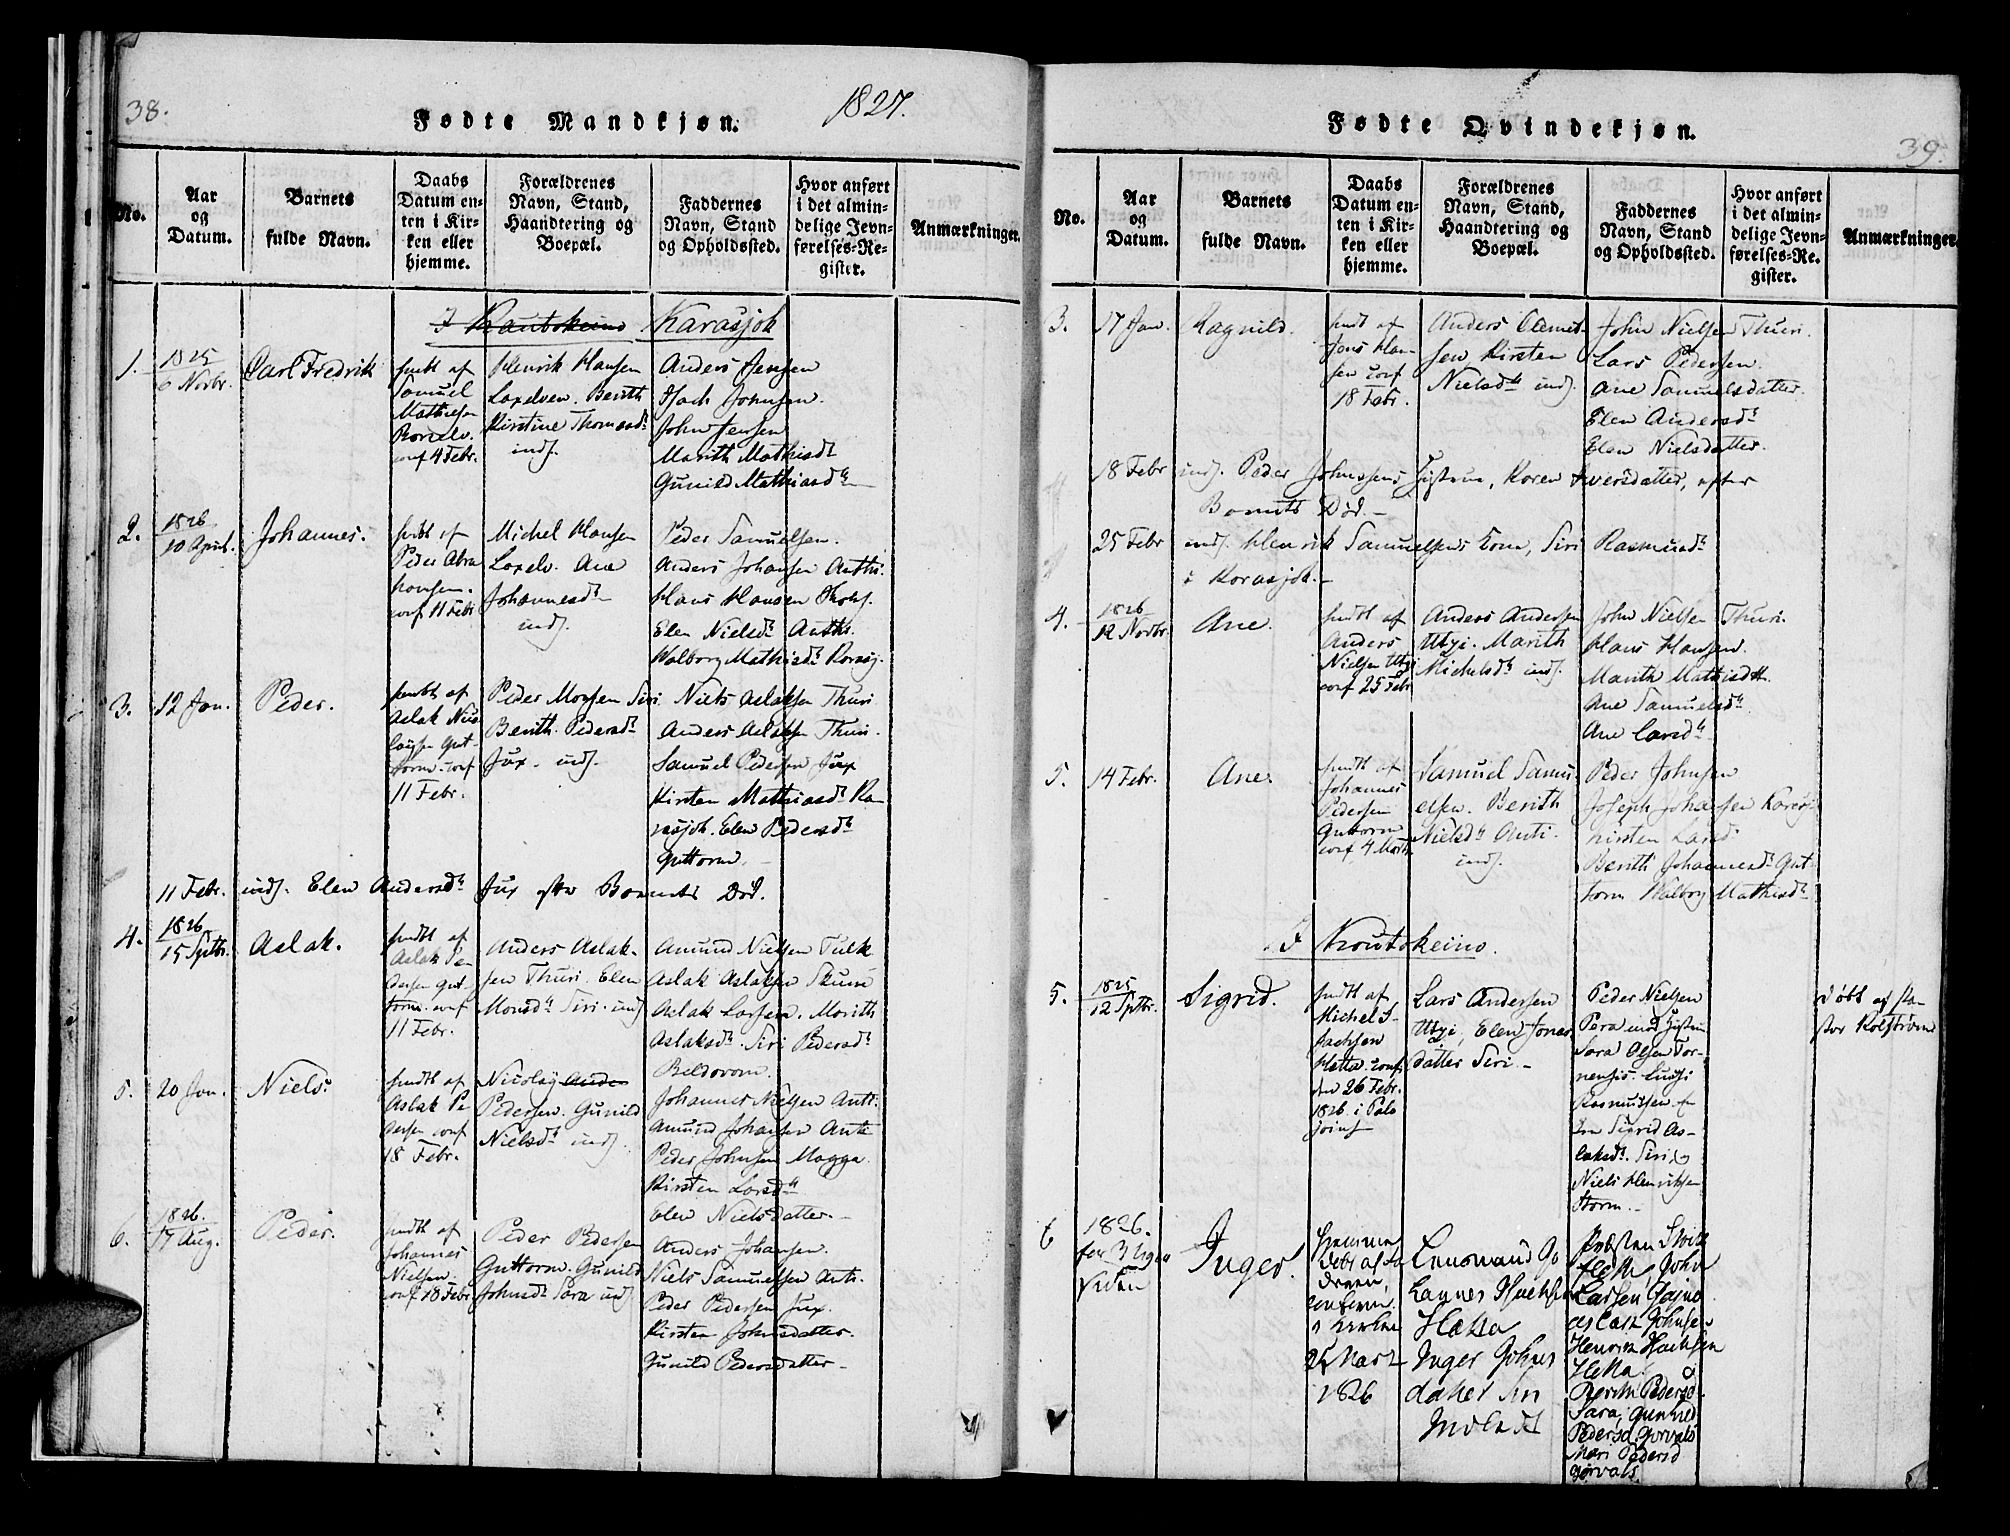 38.
Fødte Mandkjøn.
1827.
No.
Aar
og
Datum.
Barnets
fulde Navn.
Daabs
Datum en-
ten i Kir-
ken eller
hjemme.
Forældrenes
Navn, Stand,
Haandtering og
Boepæl.
Faddernes
Navn, Stand
og Opholdssted.
Hvor anført
i det almin-
delige Jevn-
førelses-Re-
gister.
Anmærkninger.
I Kautokeino Karasjok
1.
1825
6 Novbr.
Carl Fredrik
hmdt af
Samuel
Mathisen
conf 4 Febr.
Henrik Hansen
Laxelven. Berith
Kirstine Thomasdr
indf.
Anders Jensen
Isach Johnsen.
John Jensen
Marith Mathisdr
Gunild Mathiasdr
2.
1826
10 April.
Johannes.
hmdt af
Peder Abra
hamsen.
conf. 11 Febr
Michel Hansen
Laxelv. Ane
Johannesdr
indf.
Peder Samuelsen.
Anders Johansen Anthi.
Hans Hansen
Elen Nielsdr Anthi.
Walborg Mathisdr Karasj.
3.
12 Jan.
Peder.
hmdt af
Aslak Niic
laysen Gut-
torm. conf
11 Febr.
Peder Monsen Siri.
Berith Pedersdr
Jux. indf.
Niels Aslaksen Thuri
Anders Aslaksen Thuri.
Samuel Pedersen Jux
Kirsten Mathiasdr Ka
rasjok. Elen Pedersdr
Guttorm.
11 Febr.
indf. Elen Andersdr Jux efter Barnets Død.
4.
1826
15 Septbr.
Aslak.
hmdt af
Aslak Pe-
dersen Gut-
torm. conf
11 Febr.
Anders Aslak-
sen Thuri. Elen
Monsdr Siri. indf
Amund Nielsen Tulk
Aslak Aslaksen Thuri
Aslak Larsen. Marith
Aslaksdr. Siri Pedersdr
Beldovom.
5.
20 Jan.
Niels.
hmdt af
Aslak Pe
dersen conf
18 Febr.
Nicolay Ande
Pedersen. Gunild
Nielsdr indf.
Johannes Nielsen Anti.
Amund Johansen Anti
Peder Johnsen Magga.
Kirsten Larsdr
Elen Nielsdatter.
6.
1826.
17 Aug.
Peder.
hmdt af
Johannes
Nielsen
conf 18 Febr
Peder Pedersen
Guttorm. Gunild
Johnsdr Sara indf
Anders Johansen.
Niels Samuelsen Anti.
Peder Pedersen Jux.
Kirsten Johnsdatter.
Gunild Pedersdatter
Fødte Qvindekjøn.
39.
No.
Aar
og
Datum.
Barnets
fulde Navn.
Daabs
Datum en-
ten i Kir-
ken eller
hjemme.
Forældrenes
Navn, Stand,
Haandtering og
Boepæl.
Faddernes
Navn, Stand
og Opholdssted.
Hvor anført
i det almin-
delige Jevn-
førelses-Re-
gister.
Anmærkninger.
3.
17 Jan.
Ragnild.
hmdt af
Jens Han-
sen conf
18 Febr.
Anders Clemet-
sen. Kirsten
Nielsdr indf.
John Nielsen Thuri.
Lars Pedersen.
Ane Samuelsdatter.
Elen Andersdr
Elen Nielsdatter.
18 Febr
indf. Peder Johnsens Hustrue, Karen Iwersdatter, efter
Barnets Død.
25 Febr
indf. Henrik Samuelsens Kone, Siri Rasmusdr
i Karasjok.
4.
1826
12 Novbr.
Ane.
hmdt af
Anders
Nielsen Utsi
conf 25 Febr
Anders Andersen
Utsi. Marith
Michelsdr indf.
John Nielsen Thuri.
Hans Hansen.
Marith Mathisdtr.
Ane Samuelsdr
Ane Larsdr
5.
14 Febr.
Ane.
hmdt af
Johannes
Pedersen
Guttorm
conf 4 Marts
Samuel Samu
elsen. Berith
Nielsdr Anti.
indf.
Peder Johnsen
Joseph Johansen Karasj
Kirsten Larsdr
Berith Johannesdr Gut
torm Walborg Mathisdr
I Koutokeino.
5.
1825
12 Septbr.
Sigrid.
hmdt af
Michel I-
sachsen
Hætta. conf.
den 26 Febr.
1826. i Palo
joinf
Lars Andersen
Utsi, Elen Jonas
datter Siri.
Peder Nielsen
Pera med Hustru
Sara Olsen Tor-
nensis. Lussi
Rasmussen
Sigrid As-
laksdr. Siri, og
Niels Henriksen
Storm.
døbt af Pa-
stor Kolstrøm
6
1826.
for 3 Uger
siden
Inger.
hjemme
døbt af Fa
deren,
confirm.
i Kirken
25 Mart
1826
Lensmand Jo
hannes Isachsen
Hætta
Inger Johns
datter Siri
Præsten Stock
fleth, John
Larsen Gaino
Aslak Johnsen
Henrik Isachsen
Hetta.
Berith Pedersd
Sara, Gunhild
Pedersd. Gorvals
Mari Pedersd
Gorvals.